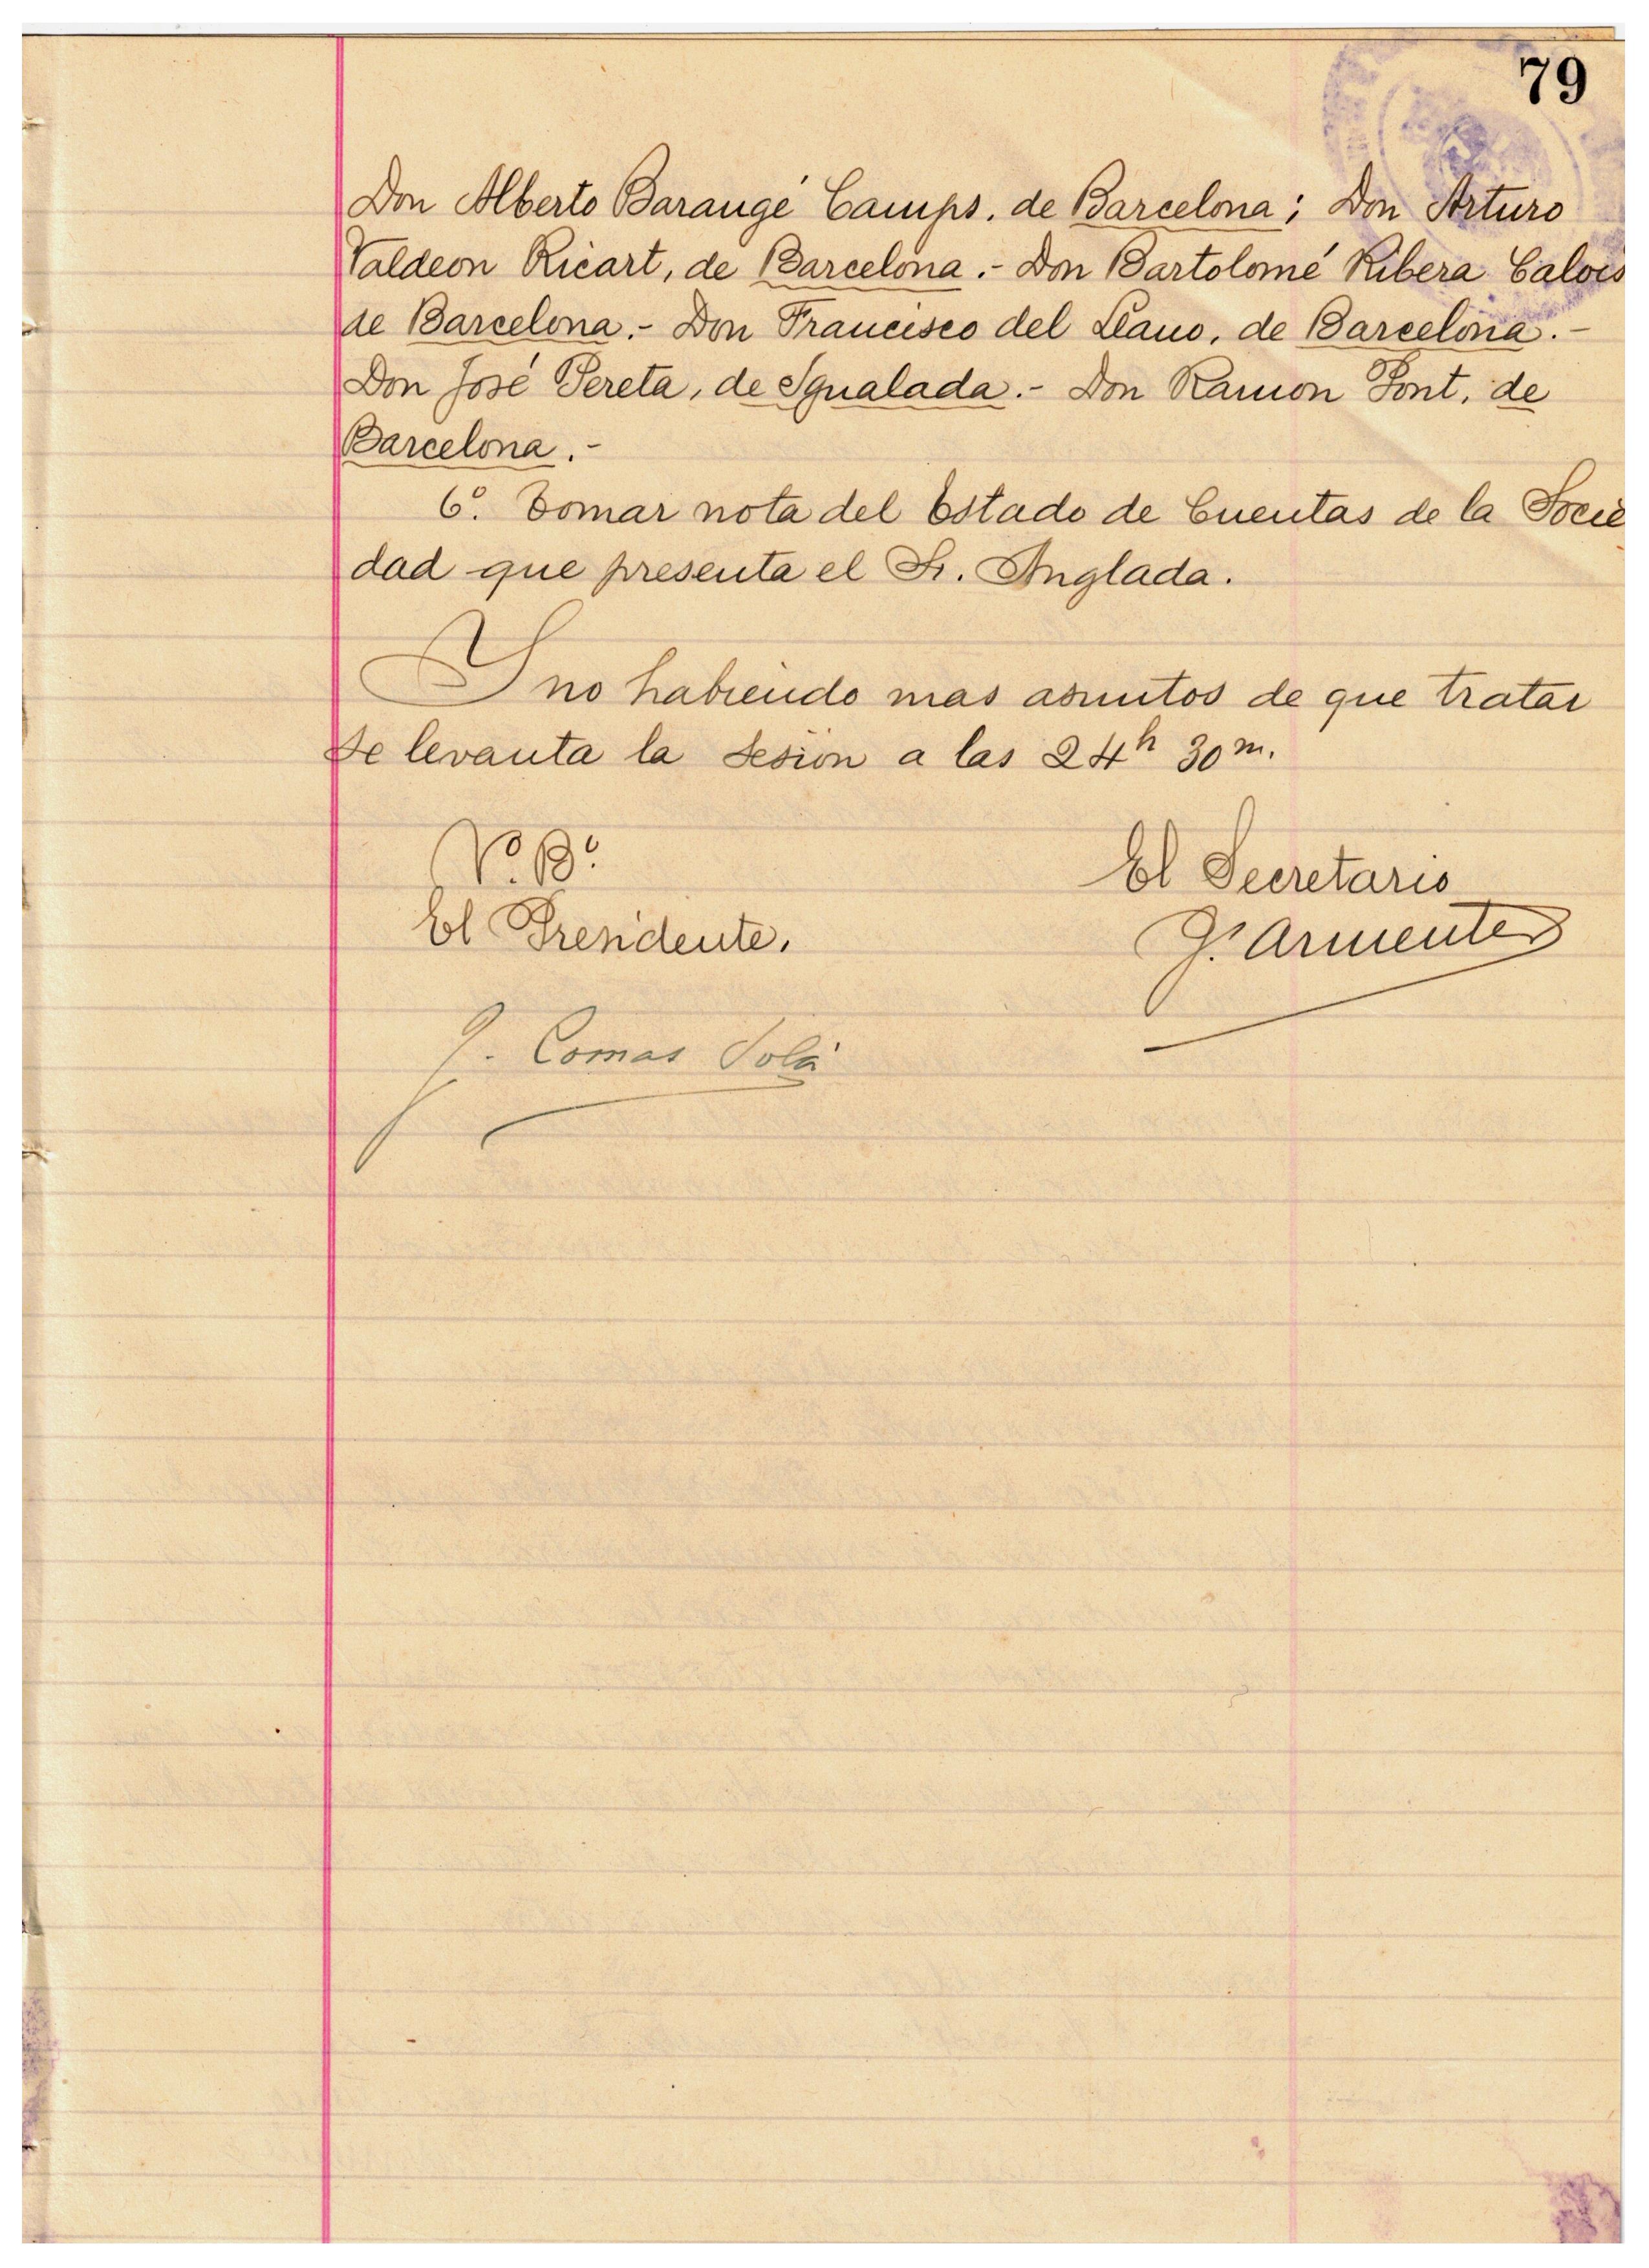 79
Don Alberto Barangé Camps, de Barcelona; Don Arturo
Valdeon Ricart, de Barcelona.- Don Bartolomé Ribera
de Barcelona.- Don Francisco del Llano, de Barcelona.-
Don José Pereta, de Igualada.- Don Ramon Font, de
Barcelona.-
6º. Tomar nota del Estado de Cuentas de la Socie
dad que presenta el Sr. Anglada.
Y no habiendo mas asuntos de que tratar
se levanta la sesion a las 24h 30m.
Vº. Bº.
El Presidente,
El Secretario
J. Armenter
J. Comas Solá